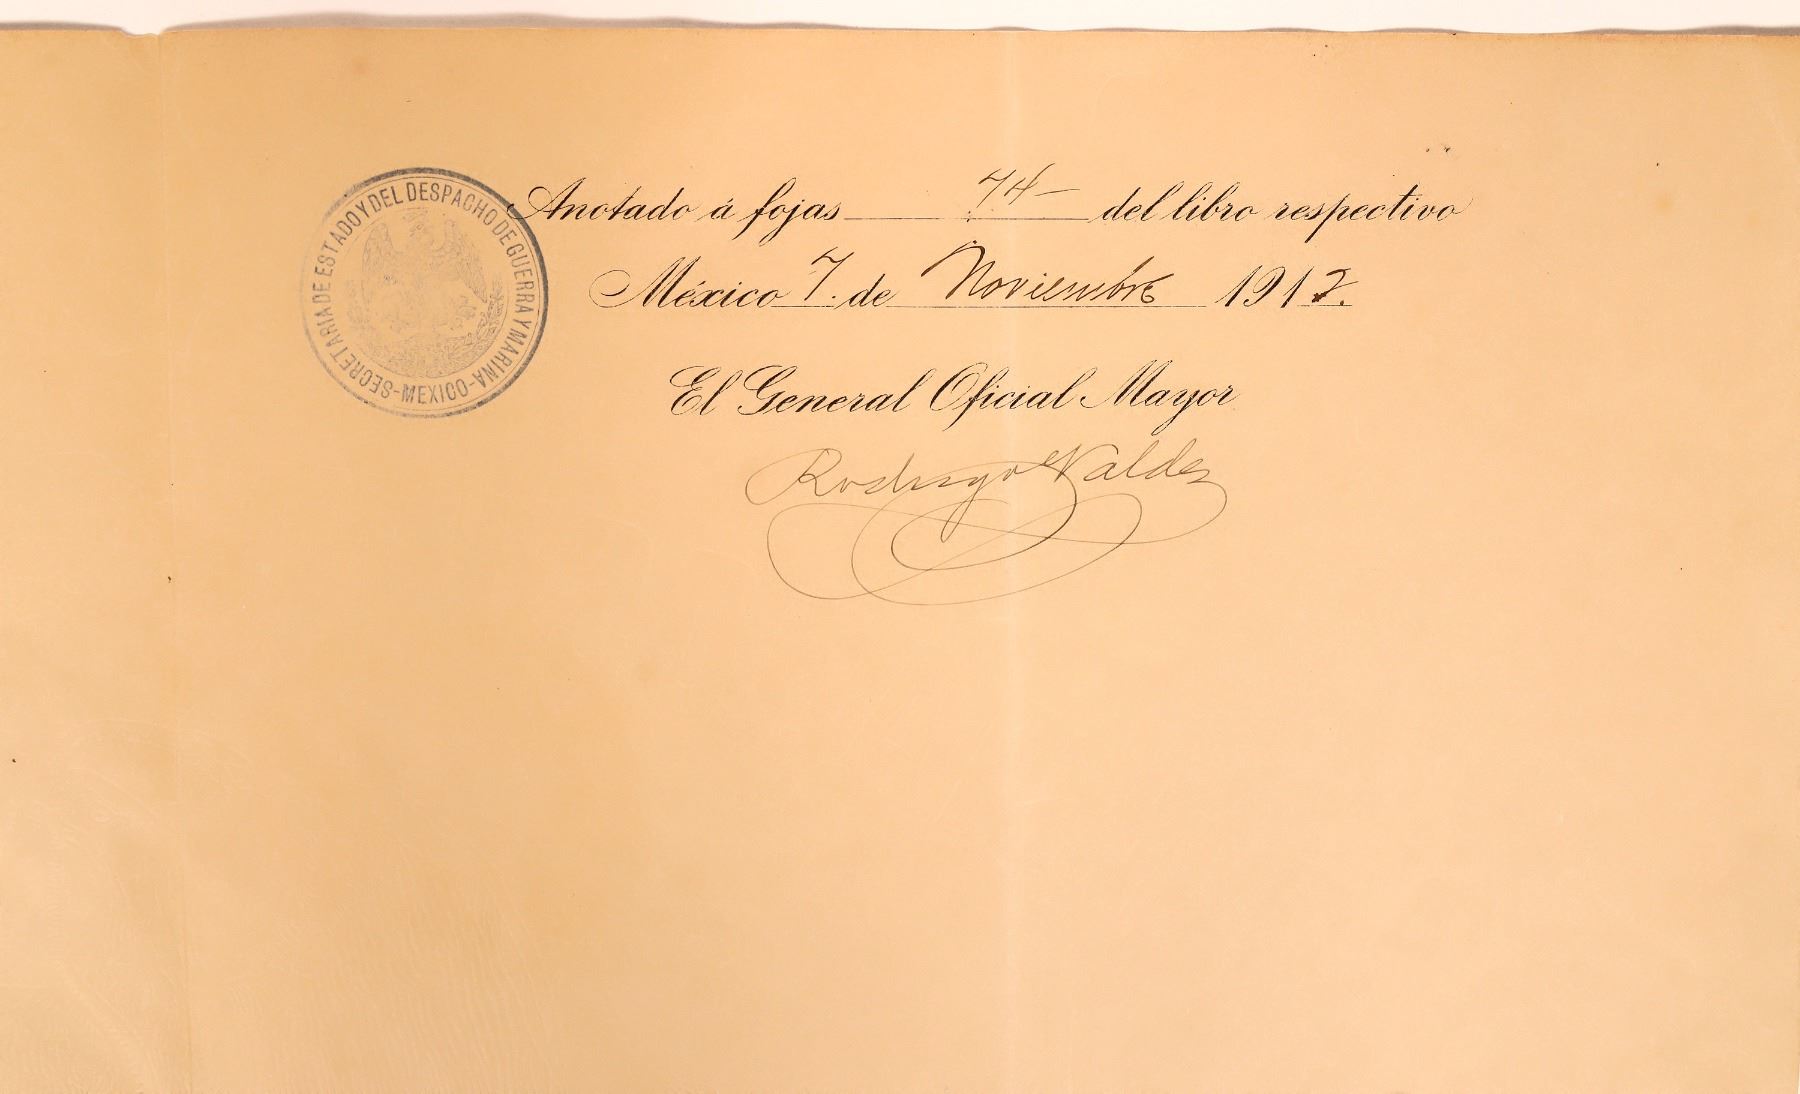 SECRETARIA DE ESTADO Y DEL DESPACHO DE GUERRA Y MARINA -MEXICO-
Anotado á fojas 74 del libro respectivo
México 7. de Noviembre 1912.
El General Oficial Mayor
Rodrigo Valdez